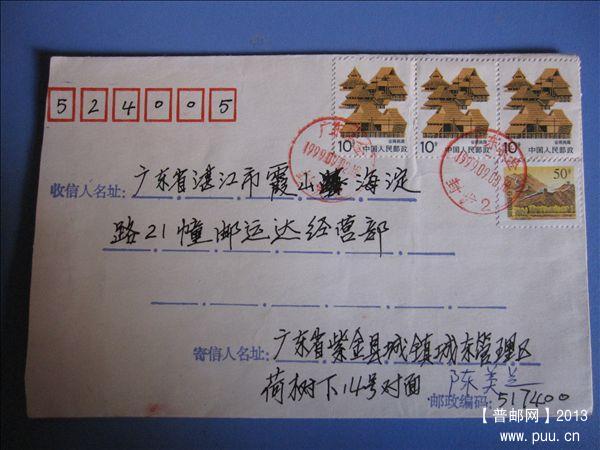 524005
10分 中国人民邮政
10分 中国人民邮政
10分 中国人民邮政
50分
1999.09.08
1999.09.08
2
收信人名址: 广东省湛江市霞山 海淀
路21幢邮运达经营部
寄信人名址: 广东省紫金县城镇城东管理区
荷树下14号对面 陈美兰
邮政编码: 517400
【普邮网】2013
www.puu.cn